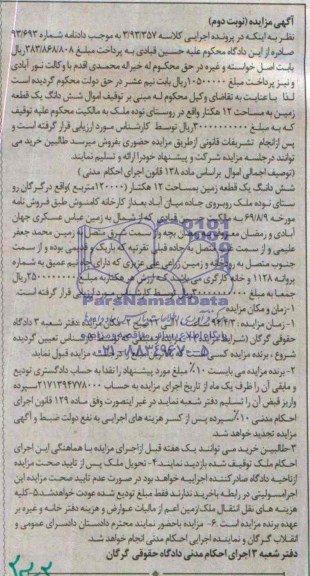 آگهی مزایده (نوبت دوم)
نظر به اینکه در پرونده اجرایی کلاسه ۳/۹۳/۳۵۷ به موجب دادنامه شماره ۹۳/۶۹۳
صادره از این دادگاه محکوم علیه حسین قبادی به پرداخت مبلغ ۳۸۳/۸۶۸/۸۰۸ ریال
بابت اصل خواسته و غیره در حق محکوم له خیراله محمدی اقدم با وکالت نور آبادی
و نیز پرداخت مبلغ ۱۰۵۰۰۰۰۰ ریال بابت نیم عشر در حق دولت محکوم گردیده است
لذا با عنایت به تقاضای وکیل محکوم له مبنی بر توقیف اموال شش دانگ یک قطعه
زمین به مساحت ۱۲ هکتار واقع در روستای توده ملک به مالکیت محکوم علیه توقیف
که به مبلغ ۳۰۰۰۰۰۰۰۰۰ ریال توسط کارشناس مورد ارزیابی قرار گرفته است و
پس از انجام تشریفات قانونی از طریق مزایده حضوری بفروش میرسد طالبین خرید می
توانند در جلسه مزایده شرکت و پیشنهاد خود را ارائه و تسلیم نمایند.
(توصیف اجمالی اموال براساس ماده ۱۳۸ قانون اجرای احکام مدنی)
شش دانگ یک قطعه زمین بمساحت ۱۲ هکتار (۱۲۰۰۰۰ مترمربع) واقع در گرگان رو
ستای توده ملک روبروی جاده میان آباد بعد از کارخانه کامنوش طبق فروش نامه
مورخه ۶۹/۸/۹ به مالکیت حسین قبادی که از شمال به زمین عباس عسکری جهان
آبادی و رمضان
علیمی و از سمت
جنوب متصل به رودخانه و زمین زراعی علی عزیزی که دارای چاه نیم عمیق به شماره
پروانه ۱۱۲۸ و خانه کارگری می باشد که ارزش هر هکتار به مبلغ ۲۵۰۰۰۰۰۰۰ ریال
جمعا به مبلغ ۳۰۰۰۰۰۰۰۰۰ ریال توسط کارشناس مورد ارزیابی قرار گرفته است.
۱- زمان و مکان مزایده:
۱- زمان مزایده: ۹۴/۴/۳ مکان مزایده دفتر شعبه ۳ دادگاه
حقوقی گرگان
شروع، برنده مزایده کسی است که مزایده قبول نماید
۲- برنده مزایده می بایست ۱۰٪ مبلغ مورد پیشنهاد را نقدا به حساب دادگستری تودیع
و مابقی آن را ظرف یک ماه از تاریخ اجرای مزایده به حساب ۲۱۷۱۳۹۴۷۷۸۰۰۰ سپرده
واریز فیش آن را تسلیم دفتر شعبه نماید در غیر اینصورت وفق ماده ۱۲۹ قانون اجرای
احکام مدنی ۱۰٪ سپرده پس از کسر هزینه های اجرایی به نفع دولت ضبط و آگهی
مزایده تجدید خواهد شد.
۳- طالبین خرید می توانند یک هفته قبل از اجرای مزایده با هماهنگی این اجرای
احکام ملک توقیف شده بازدید نمایند. ۴- تحویل ملک پس از تایید صحت مزایده
از ناحیه دادگاه صادر کننده اجراییه خواهد بود در صورت عدم تایید صحت مزایده این
اجرا مسولیتی در رابطه با خرید ندارند فقط مبلغ تودیع شده عودت خواهد شد ۵- کلیه
هزینه های نقل انتقال ملک زمین اعم از مالیات عوارض و هزینه دفتر خانه و غیره بر
عهده برنده مزایده است. ۶- مزایده با حضور نماینده محترم دادستان دادسرای عمومی و
انقلاب گرگان و نماینده اجرایی احکام مدنی انجام خواهد شد
دفتر شعبه ۳ اجرای احکام مدنی دادگاه حقوقی گرگان
ParsNamadData
۰۲۱-۸۸۳۴۹۶۷۰-۵